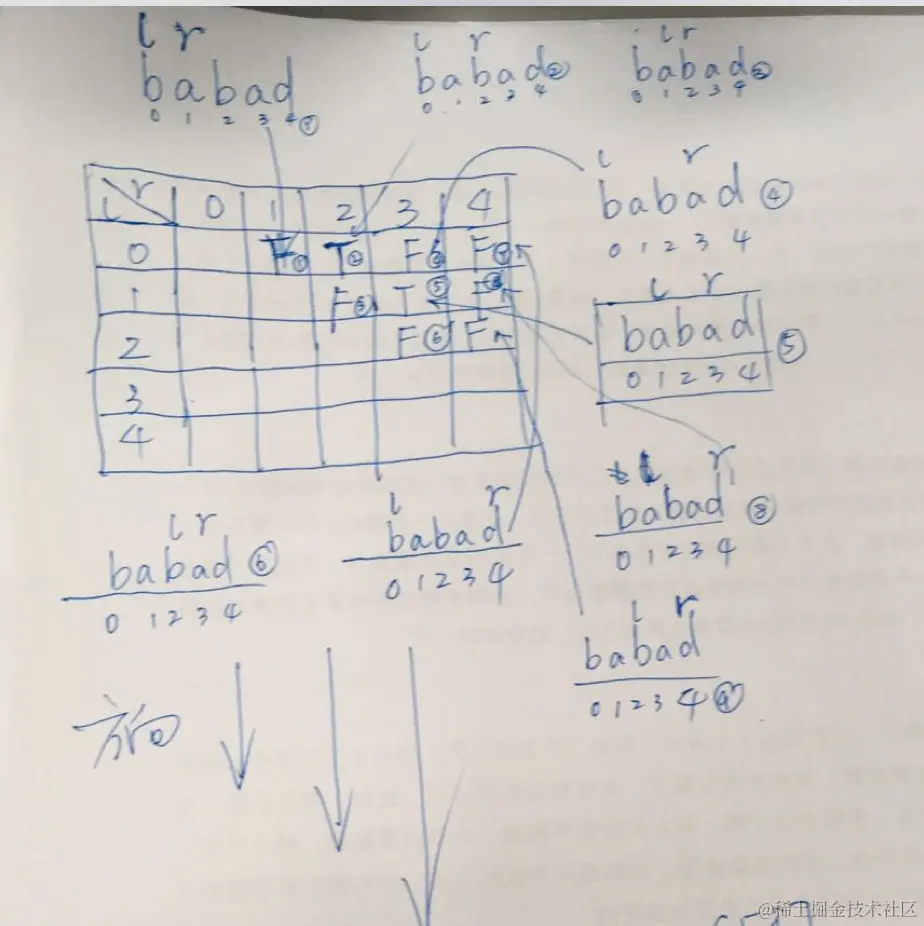 l r
babad
0 1 2 3 4 ①
l r
babad②
0 1 2 3 4
l r
babad③
0 1 2 3 4
l r
babad ④
0 1 2 3 4
l r 0 1 2 3 4
0 F① T② F F
1 F③ T⑤
2 F⑥ F
3
4
l r
babad ⑤
0 1 2 3 4
l r
babad ⑥
0 1 2 3 4
l r
babad
0 1 2 3 4
r
babad ⑧
0 1 2 3 4
l r
babad
0 1 2 3 4 ⑨
方向
@稀土掘金技术社区